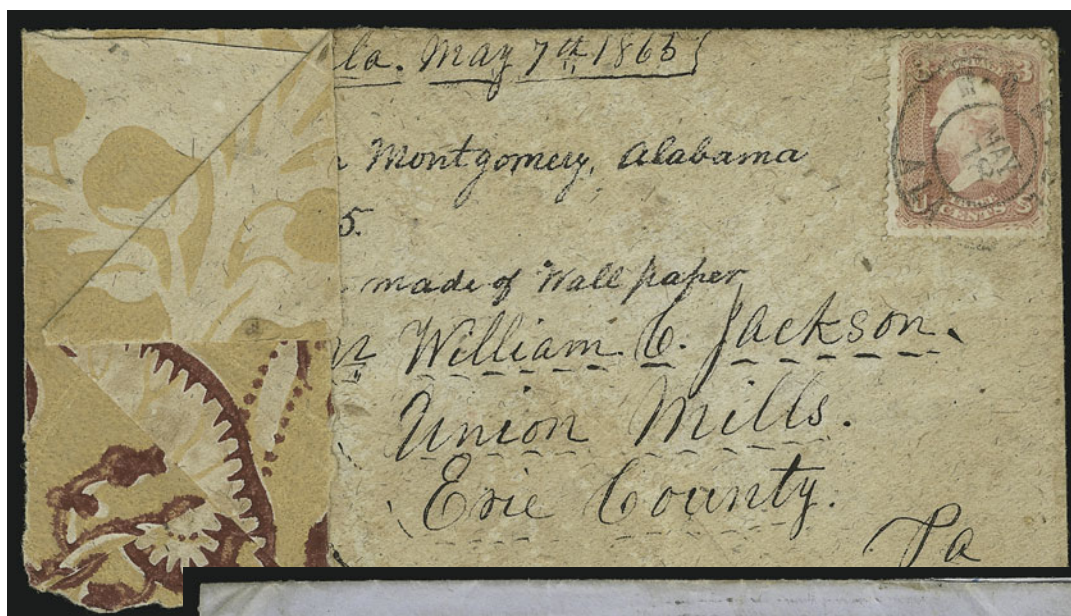 la. May 7th 1865
Montgomery, Alabama
5.
made of Wall paper
William C. Jackson.
Union Mills.
Erie County.
Pa
3 3
CENTS
MAY